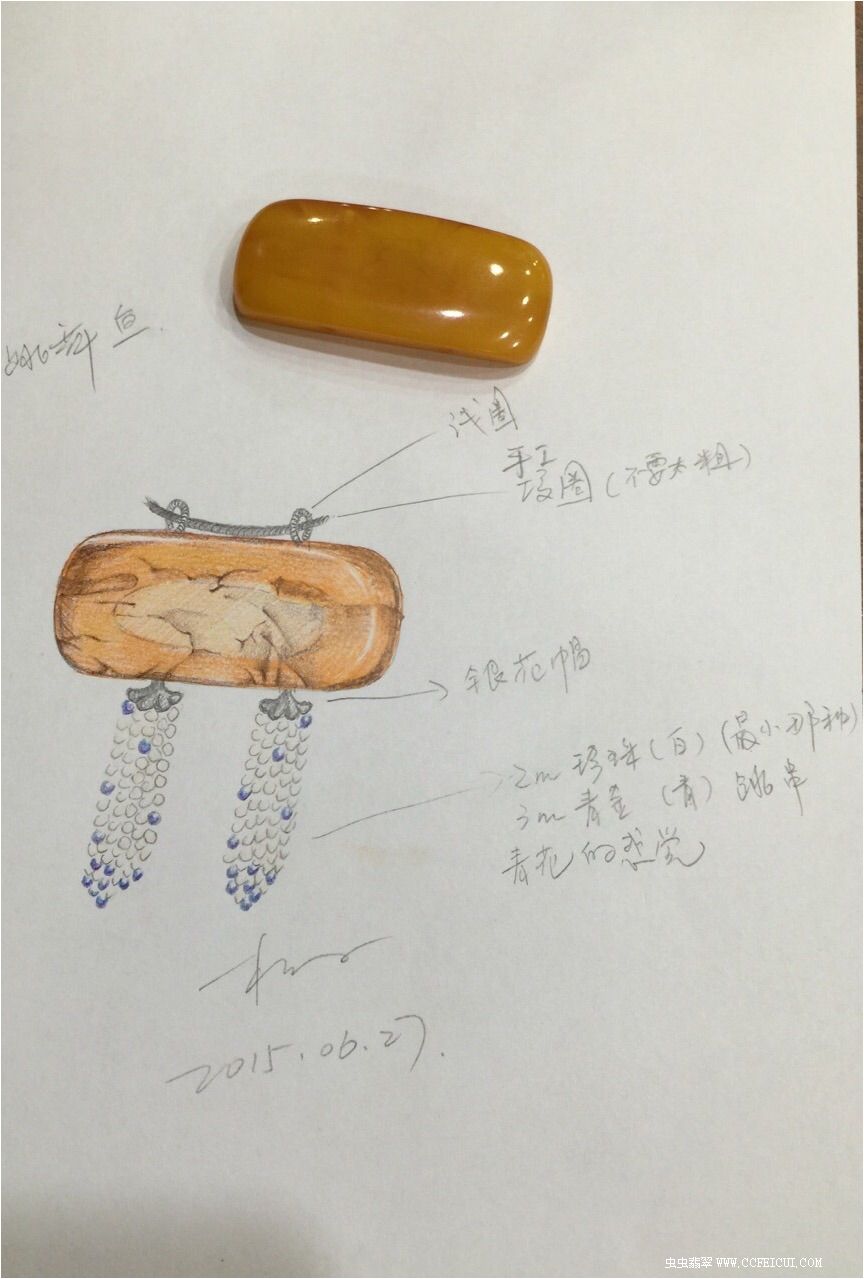 鱼.
线圈
手工
段圈(不要太粗)
银花帽
2m 珍珠(白)(最小那种)
3m 青金(青) 跳串
青花的感觉
2015.06.27.
虫虫翡翠 WWW.CCFEICUI.COM